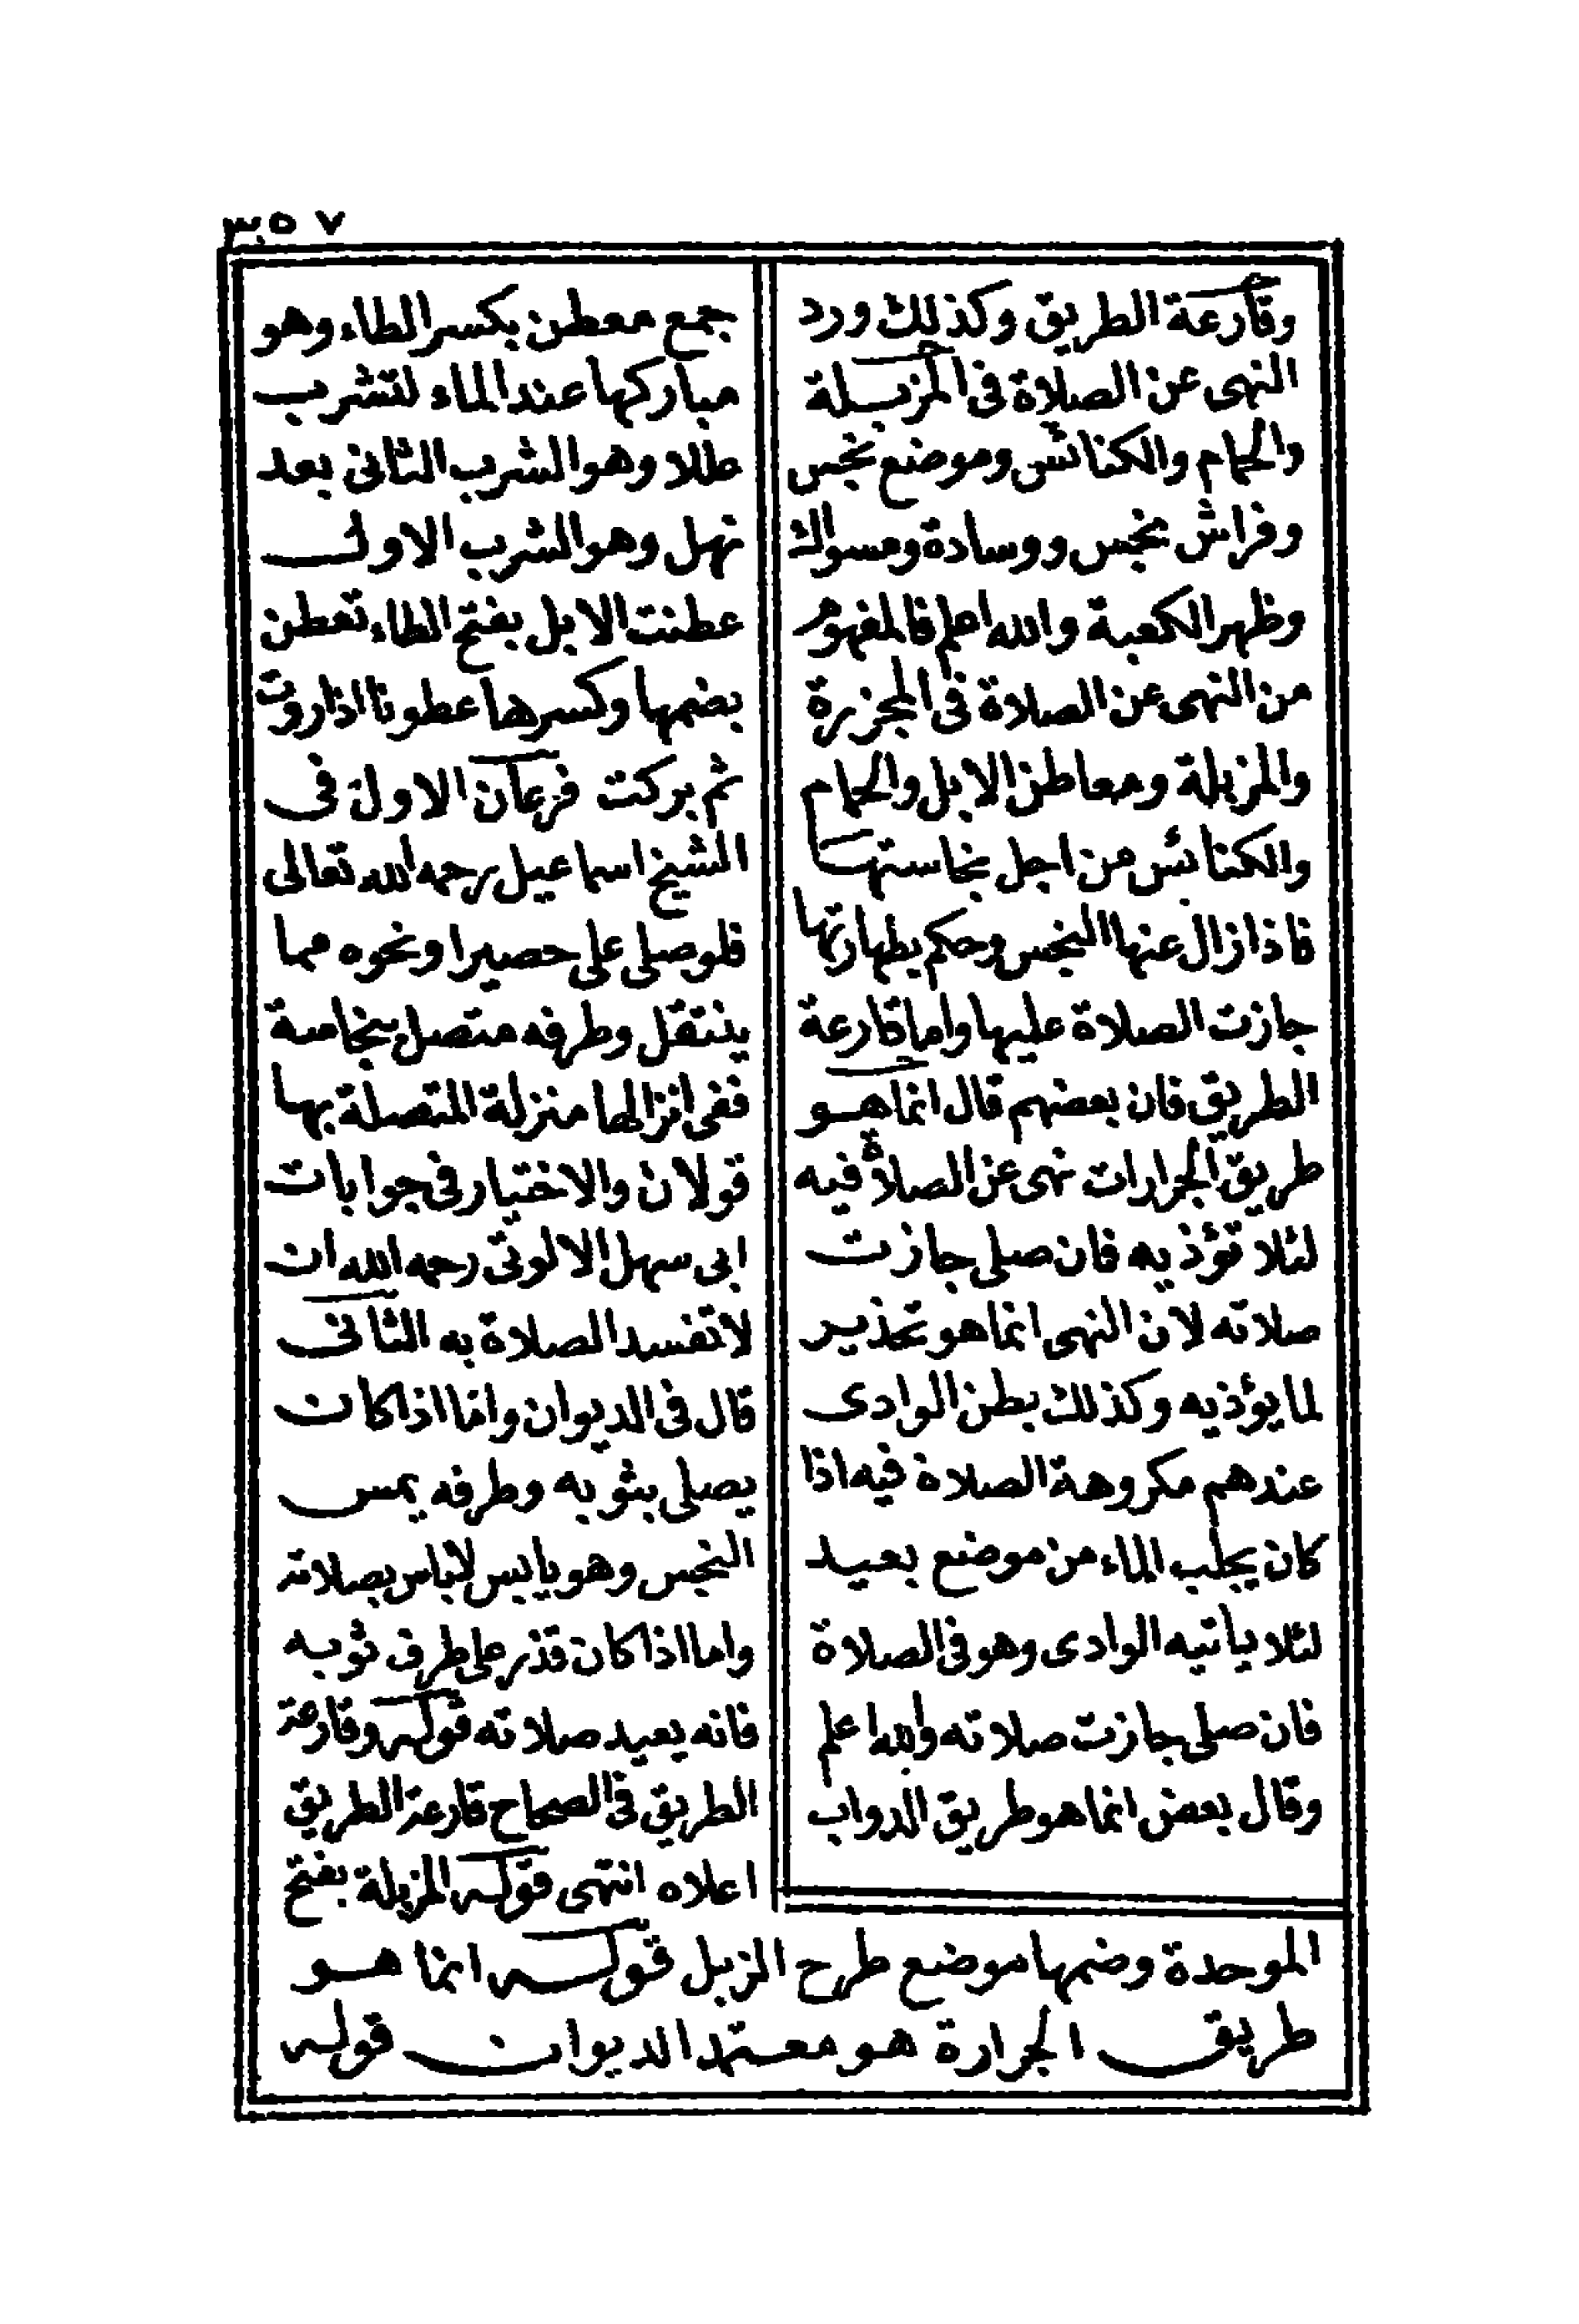 ٣٥٧
وقارعة الطريق وكذلك ورد
النهى عن الصلاة فى المزبلة
والحمام والكنائس وموضع نجس
وفراش نجس ووسادة ومسواك
وظهر الكعبة والله اعلم فالمفهوم
من النهى عن الصلاة فى المجزرة
والمزبلة ومعاطن الابل والحمام
والكنائس من اجل نجاستها
فاذا زال عنها النجس وحكم بطهارتها
جازت الصلاة عليها واما قارعة
الطريق فان بعضهم قال انما هو
طريق الجرارات نهى عن الصلاة فيه
لئلا تؤذيه فان صلى جازت
صلاته لان النهى انما هو تحذير
لما يؤذيه وكذلك بطن الوادى
عندهم مكروهة الصلاة فيه اذا
كان يجلب الماء من موضع بعيد
لئلا ياتيه الوادى وهو فى الصلاة
فان صلى جازت صلاته والله اعلم
وقال بعض انما هو طريق الدواب
جمع معطن بكسر الطاء وهو
مباركها عند الماء لتشرب
طللا وهو الشرب الثانى بعد
نهل وهو الشرب الاول
عطنت الابل بفتح الطاء تعطن
بضمها وكسرها عطونا اذا روت
ثم بركت فرعان الاول فى
الشيخ اسماعيل رحمه الله تعالى
فلو صلى على حصير او نحوه مما
ينتقل وطرفه متصل بنجاسة
ففى انزالها منزلة المتصلة بها
قولان والاختيار فى جوابات
ابى سهل الالوتى رحمه الله ان
لا تفسد الصلاة به الثانى
قال فى الديوان واما اذا كان
يصلى بثوبه وطرفه يمس
النجس وهو يابس لاباس بصلاته
واما اذا كان قذر على طرف ثوبه
فانه يعيد صلاته قوله وقارعة
الطريق فى الصحاح قارعة الطريق
اعلاه انتهى قوله المزبلة بفتح
الموحدة وضمها موضع طرح الزبل قوله انما هو
طريق الجرارة هو معتمد الديوان قوله